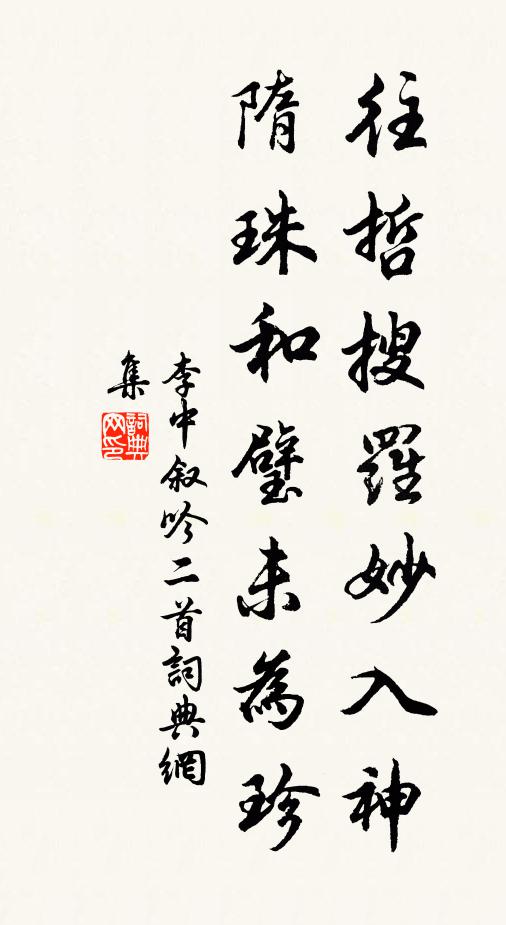 往哲搜羅妙入神
隋珠和璧未為珍
李中叙吟二首詞典網
集
詞典
网印